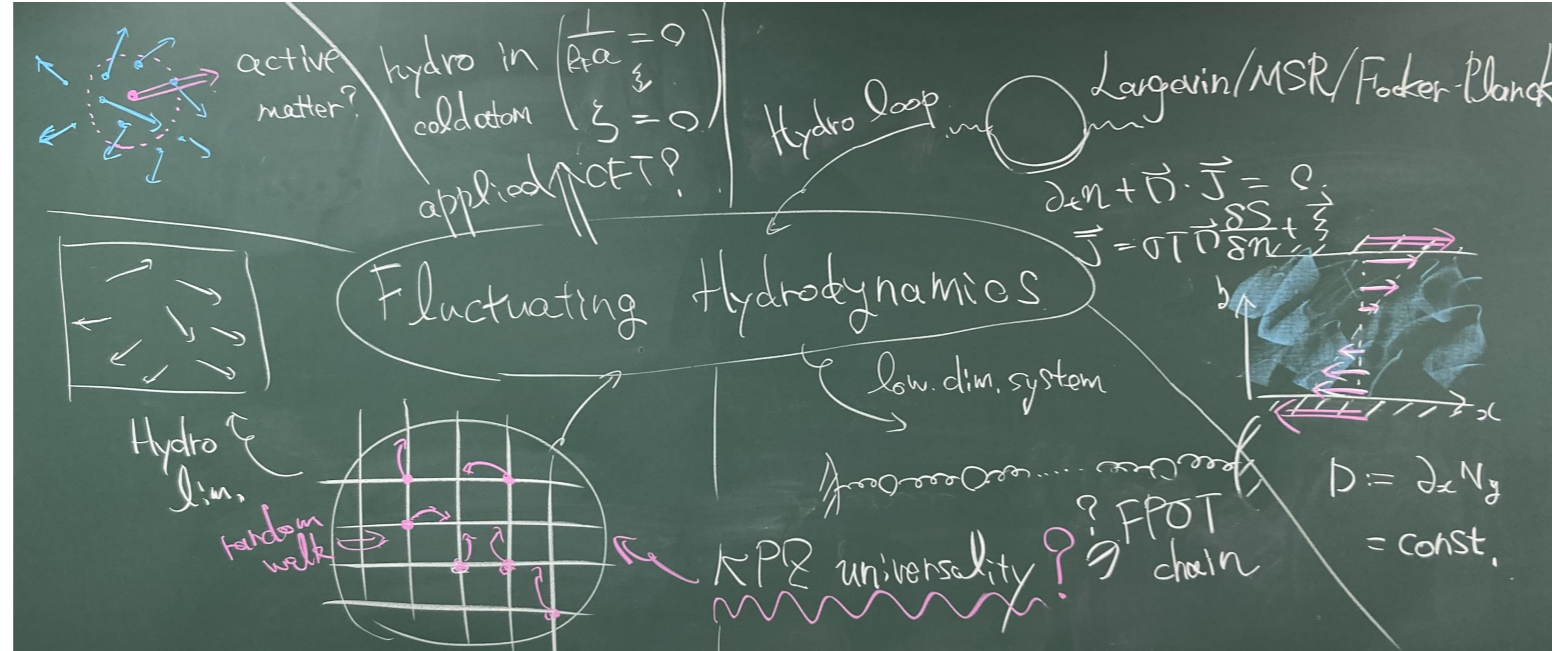 active
matter?
hydro in
cold atom
1/k_F a = 0
ξ
ζ = 0
applied CFT?
Hydro loop
Langevin/MSR/Focker-Planck
∂ₜn + ∇⃗·J⃗ = 0.
J⃗ = σT∇⃗ δS/δn + ξ⃗
Fluctuating Hydrodynamics
y
x
low. dim. system
Hydro
lim.
random
walk
KPZ universality?
? FPUT
chain
D := ∂ₓ Vy
= const.